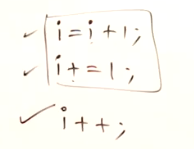 i=i+1;
i+=1;
i++;